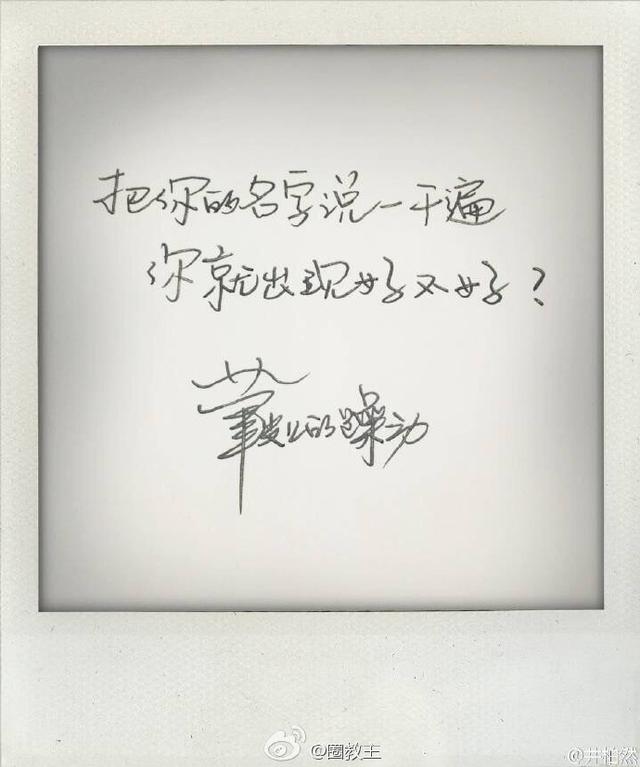 把你的名字说一千遍
你就出现好不好?
的躁动
@圈教主
@井柏然